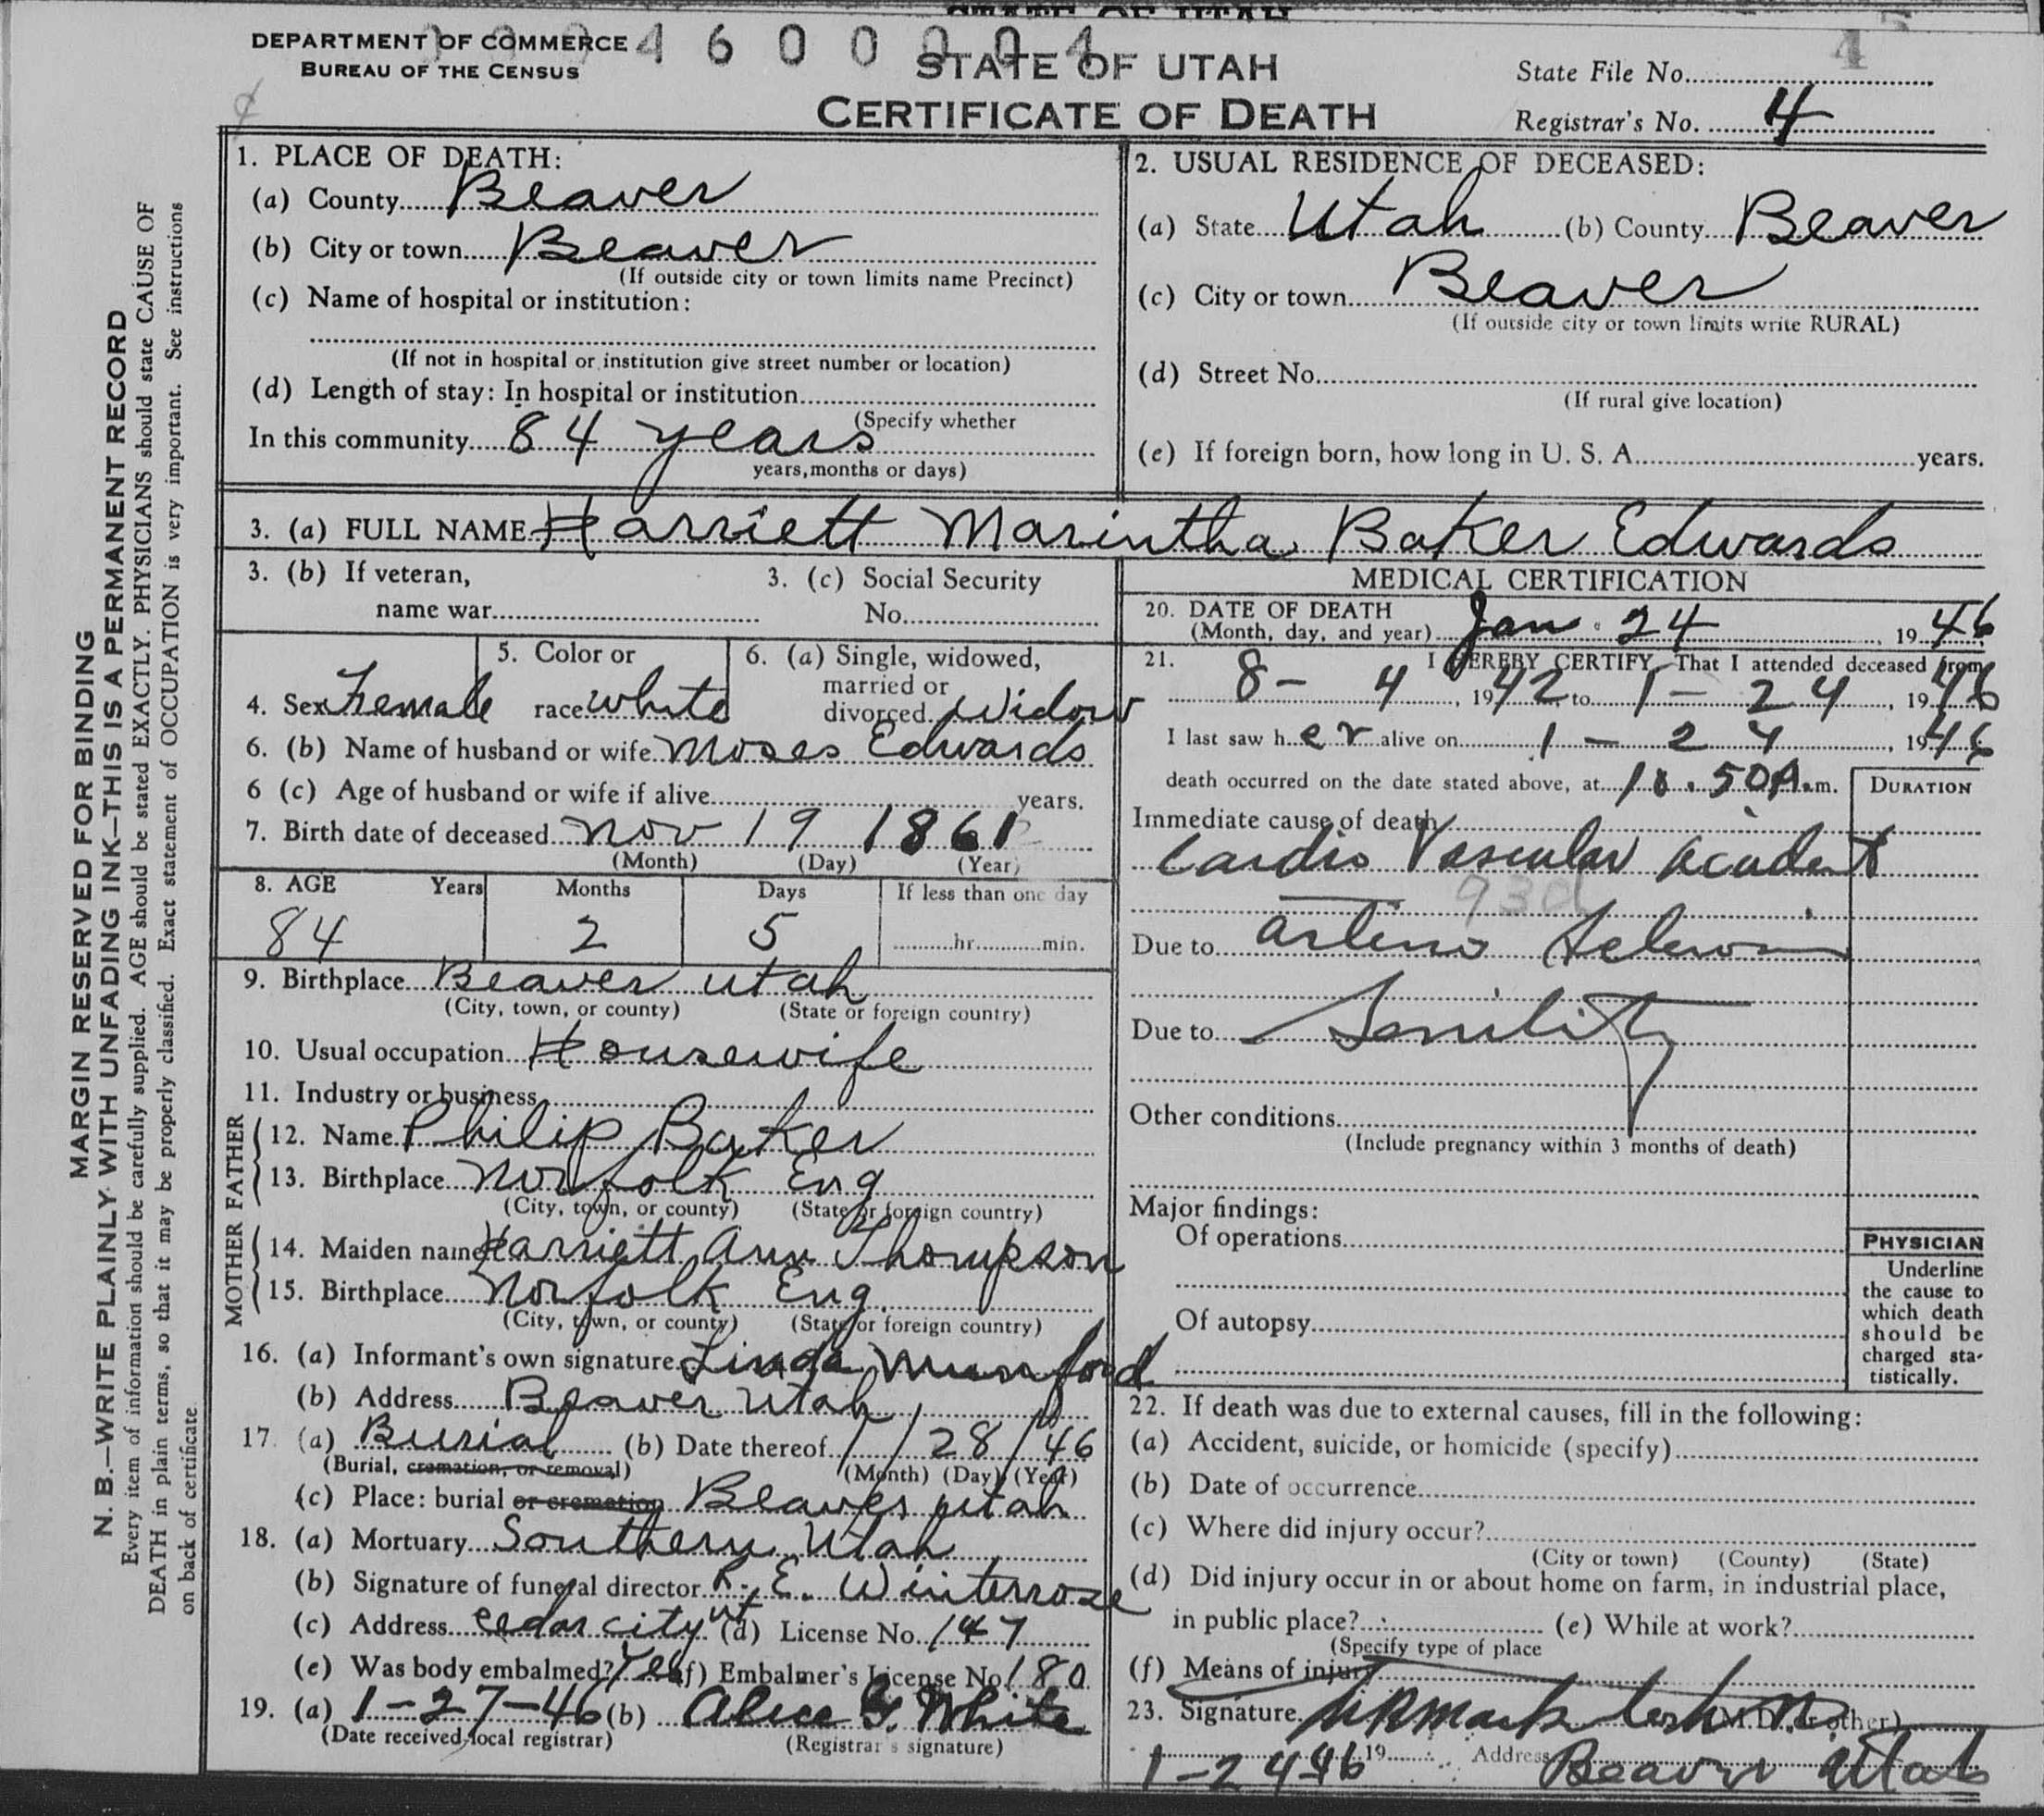 STATE OF UTAH
DEPARTMENT OF COMMERCE
BUREAU OF THE CENSUS
4600004
STATE OF UTAH
CERTIFICATE OF DEATH
State File No. 4
Registrar's No. 4
MARGIN RESERVED FOR BINDING
N. B.—WRITE PLAINLY WITH UNFADING INK—THIS IS A PERMANENT RECORD
Every item of information should be carefully supplied. AGE should be stated EXACTLY. PHYSICIANS should state CAUSE OF
DEATH in plain terms, so that it may be properly classified. Exact statement of OCCUPATION is very important. See instructions
on back of certificate.
1. PLACE OF DEATH:
(a) County Beaver
(b) City or town Beaver
(If outside city or town limits name Precinct)
(c) Name of hospital or institution:
(If not in hospital or institution give street number or location)
(d) Length of stay: In hospital or institution
(Specify whether
In this community 84 years
years, months or days)
2. USUAL RESIDENCE OF DECEASED:
(a) State Utah (b) County Beaver
(c) City or town Beaver
(If outside city or town limits write RURAL)
(d) Street No.
(If rural give location)
(e) If foreign born, how long in U. S. A. years.
3. (a) FULL NAME Harriett Marintha Baker Edwards
3. (b) If veteran,
name war
3. (c) Social Security
No.
4. Sex Female
5. Color or
race white
6. (a) Single, widowed,
married or
divorced Widow
6. (b) Name of husband or wife Moses Edwards
6 (c) Age of husband or wife if alive years.
7. Birth date of deceased Nov 19 1861
(Month) (Day) (Year)
8. AGE Years Months Days If less than one day
84 2 5 hr. min.
9. Birthplace Beaver Utah
(City, town, or county) (State or foreign country)
10. Usual occupation Housewife
11. Industry or business
FATHER
12. Name Philip Baker
13. Birthplace Norfolk Eng
(City, town, or county) (State or foreign country)
MOTHER
14. Maiden name Harriett Ann Thompson
15. Birthplace Norfolk Eng.
(City, town, or county) (State or foreign country)
16. (a) Informant's own signature Linda Munford
(b) Address Beaver Utah
17. (a) Burial (b) Date thereof 1/28/46
(Burial, cremation, or removal) (Month) (Day) (Year)
(c) Place: burial or cremation Beaver Utah
18. (a) Mortuary Southern Utah
(b) Signature of funeral director R. E. Winterrose
(c) Address Cedar City Ut (d) License No. 147
(e) Was body embalmed? Yes (f) Embalmer's License No. 180
19. (a) 1-27-46 (b) Alice G. White
(Date received local registrar) (Registrar's signature)
MEDICAL CERTIFICATION
20. DATE OF DEATH
(Month, day, and year) Jan. 24, 1946
21. I HEREBY CERTIFY, That I attended deceased from
8-4, 1942 to 1-24, 1946
I last saw her alive on 1-24, 1946
death occurred on the date stated above, at 10.50A.m.
DURATION
Immediate cause of death
Cardio Vascular Acident
93d
Due to Arterio Sclerosis
Due to Senility
Other conditions
(Include pregnancy within 3 months of death)
Major findings:
Of operations
Of autopsy
PHYSICIAN
Underline
the cause to
which death
should be
charged sta-
tistically.
22. If death was due to external causes, fill in the following:
(a) Accident, suicide, or homicide (specify)
(b) Date of occurrence
(c) Where did injury occur?
(City or town) (County) (State)
(d) Did injury occur in or about home on farm, in industrial place,
in public place? (e) While at work?
(Specify type of place
(f) Means of injury
23. Signature (M.D. or other)
1-24-46 19 Address Beaver Utah